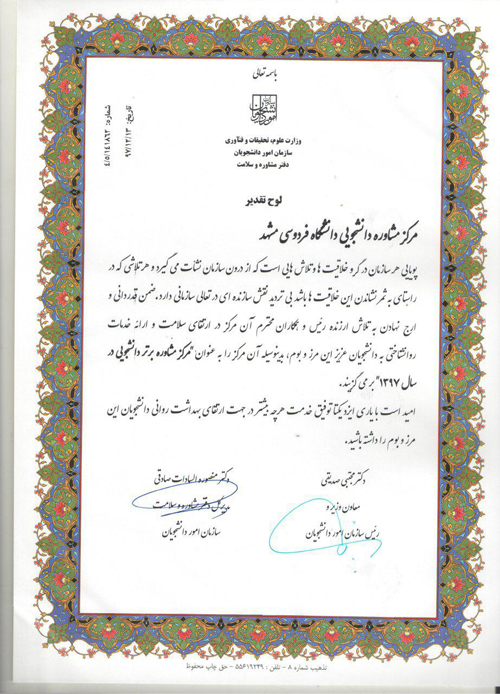 باسمه تعالی
شماره: ۴/۵/۱۴۱۸۶۲
تاریخ: ۹۷/۱۲/۱۳
سازمان امور دانشجویان
وزارت علوم، تحقیقات و فنّآوری
سازمان امور دانشجویان
دفتر مشاوره و سلامت
لوح تقدیر
مرکز مشاوره دانشجویی دانشگاه فردوسی مشهد
پویایی هر سازمان در گرو خلاقیت ها و تلاش هایی است که از درون سازمان نشات می گیرد و هر تلاشی که در
راستای به ثمر نشاندن این خلاقیت ها باشد بی تردید نقش سازنده ای در تعالی سازمانی دارد. ضمن قدردانی و
ارج نهادن به تلاش ارزنده رئیس و همکاران محترم آن مرکز در ارتقای سلامت و ارائه خدمات
روانشناختی به دانشجویان عزیز این مرز و بوم، بدینوسیله آن مرکز را به عنوان "مرکز مشاوره برتر دانشجویی در
سال ۱۳۹۷" بر می گزیند.
امید است با یاری ایزد یکتا توفیق خدمت هرچه بیشتر در جهت ارتقای بهداشت روانی دانشجویان این
مرز و بوم را داشته باشید.
دکتر مجتبی صدیقی
معاون وزیر و
رئیس سازمان امور دانشجویان
دکتر منصوره السادات صادقی
مدیرکل دفتر مشاوره و سلامت
سازمان امور دانشجویان
تذهیب شماره ۸ - تلفن : ۵۵۶۱۹۲۳۹ - حق چاپ محفوظ